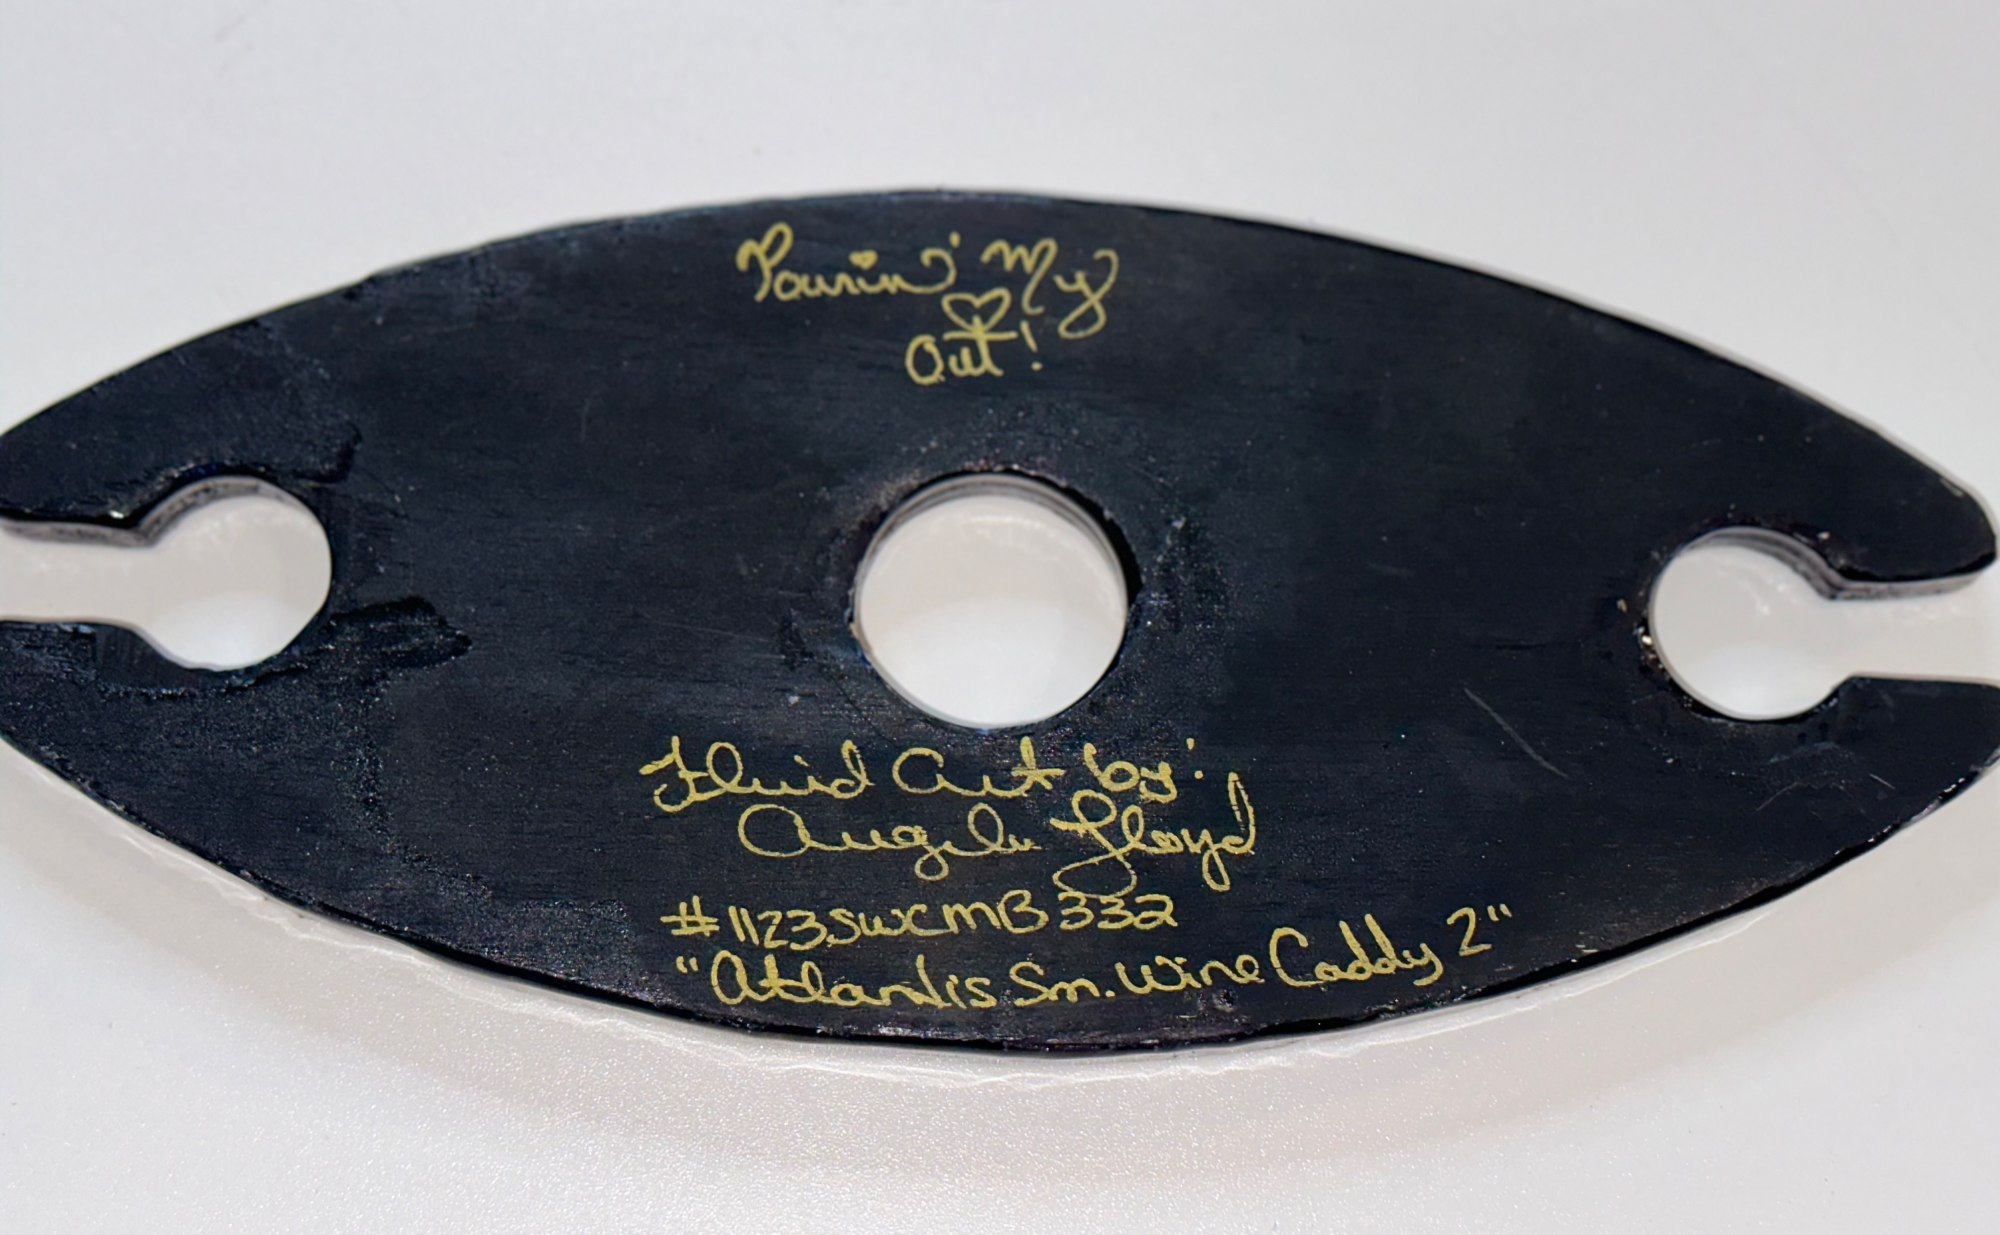 Pourin' My
♡
Out!
Fluid Art by:
Angela Floyd
#1123SWCMB332
"Atlantis Sm. Wine Caddy 2"